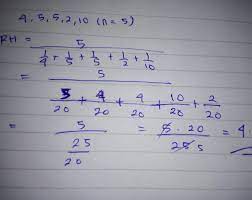 4, 5, 5, 2, 10 (n = 5)
RH = 5 / (1/4 + 1/5 + 1/5 + 1/2 + 1/10)
= 5 / (5/20 + 4/20 + 4/20 + 10/20 + 2/20)
= 5 / (25/20) = 5 . 20 / 25 5 = 4